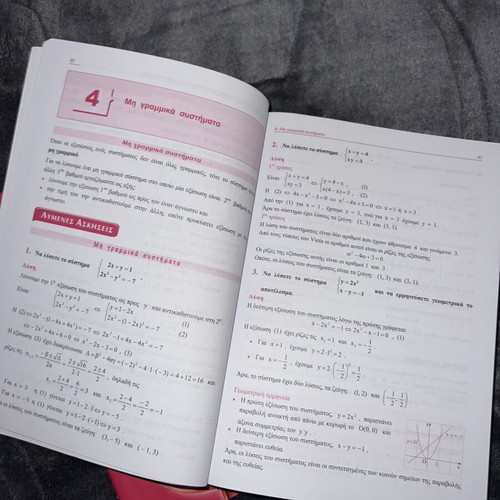 40
4
Μη γραμμικά συστήματα
Μη γραμμικά συστήματα
Όταν οι εξισώσεις ενός συστήματος δεν είναι όλες γραμμικές, τότε το σύστημα
μη γραμμικό.
Για να λύσουμε ένα μη γραμμικό σύστημα στο οποίο μία εξίσωση είναι 2ου βαθμού
άλλη 1ου βαθμού εργαζόμαστε ως εξής:
• λύνουμε την εξίσωση 1ου βαθμού ως προς τον έναν άγνωστο και
• την τιμή του την αντικαθιστούμε στην άλλη, οπότε προκύπτει εξίσωση με
άγνωστο.
ΛΥΜΕΝΕΣ ΑΣΚΗΣΕΙΣ
Μη γραμμικά συστήματα
1. Να λύσετε το σύστημα { 2x + y = 1
2x² – y² = –7 .
Λύση
Λύνουμε την 1η εξίσωση του συστήματος ως προς y και αντικαθιστούμε στη 2η.
Είναι { 2x + y = 1
2x² – y² = –7 ⇔ { y = 1 – 2x (1)
2x² – (1 – 2x)² = –7 (2)
Η (2) ⇔ 2x² – (1 – 4x + 4x²) = –7 ⇔ 2x² – 1 + 4x – 4x² = –7
⇔ –2x² + 4x + 6 = 0 ⇔ x² – 2x – 3 = 0 (3)
Η εξίσωση (3) έχει διακρίνουσα Δ = β² – 4αγ = (–2)² – 4·1·(–3) = 4 + 12 = 16 και
ρίζες τις x₁,₂ = (–β ± √Δ)/2α = (2 ± √16)/2·1 = (2 ± 4)/2, δηλαδή τις
x₁ = (2 + 4)/2 = 6/2 = 3 και x₂ = (2 – 4)/2 = –2/2 = –1
Για x = 3 η (1) γίνεται y = 1 – 2·3 ⇔ y = –5
Για x = –1 η (1) γίνεται y = 1 – 2·(–1) ⇔ y = 3
οι λύσεις του συστήματος είναι τα ζεύγη (3, –5) και (–1, 3)
4. Μη γραμμικά συστήματα
41
2. Να λύσετε το σύστημα { x + y = 4
xy = 3 .
Λύση
1ος τρόπος
Είναι { x + y = 4
xy = 3 ⇔ { y = 4 – x (1)
x(4 – x) = 3 (2)
Η (2) ⇔ 4x – x² – 3 = 0 ⇔ x² – 4x + 3 = 0 ⇔ x = 1 ή x = 3
Από την (1) για x = 1 έχουμε y = 3, ενώ για x = 3 έχουμε y = 1.
Άρα το σύστημα έχει λύσεις τα ζεύγη: (1, 3) και (3, 1).
2ος τρόπος
Η λύση του συστήματος είναι δύο αριθμοί που έχουν άθροισμα 4 και γινόμενο 3.
Από τους τύπους του Vieta οι αριθμοί αυτοί είναι οι ρίζες της εξίσωσης
ω² – 4ω + 3 = 0
Οι ρίζες της εξίσωσης αυτής είναι οι αριθμοί 1 και 3.
Οπότε, οι λύσεις του συστήματος είναι τα ζεύγη: (1, 3) και (3, 1).
3. Να λύσετε το σύστημα { y = 2x²
x – y = –1 και να ερμηνεύσετε γεωμετρικά το
αποτέλεσμα.
Λύση
Η δεύτερη εξίσωση του συστήματος λόγω της πρώτης γράφεται:
x – 2x² = –1 ⇔ 2x² – x – 1 = 0 (1)
Η εξίσωση (1) έχει ρίζες τις x₁ = 1 και x₂ = –1/2
• Για x = 1, έχουμε y = 2·1² = 2.
• Για x = –1/2, έχουμε y = 2·(–1/2)² = 1/2
Άρα, το σύστημα έχει δύο λύσεις, τα ζεύγη: (1, 2) και (–1/2, 1/2)
Γεωμετρική ερμηνεία
• Η πρώτη εξίσωση του συστήματος, y = 2x², παριστάνει
παραβολή ανοικτή από πάνω με κορυφή το O(0, 0) και
άξονα συμμετρίας τον y΄y.
• Η δεύτερη εξίσωση του συστήματος, x – y = –1,
παριστάνει ευθεία.
Άρα, οι λύσεις του συστήματος είναι οι συντεταγμένες των κοινών σημείων της παραβολής
και της ευθείας.